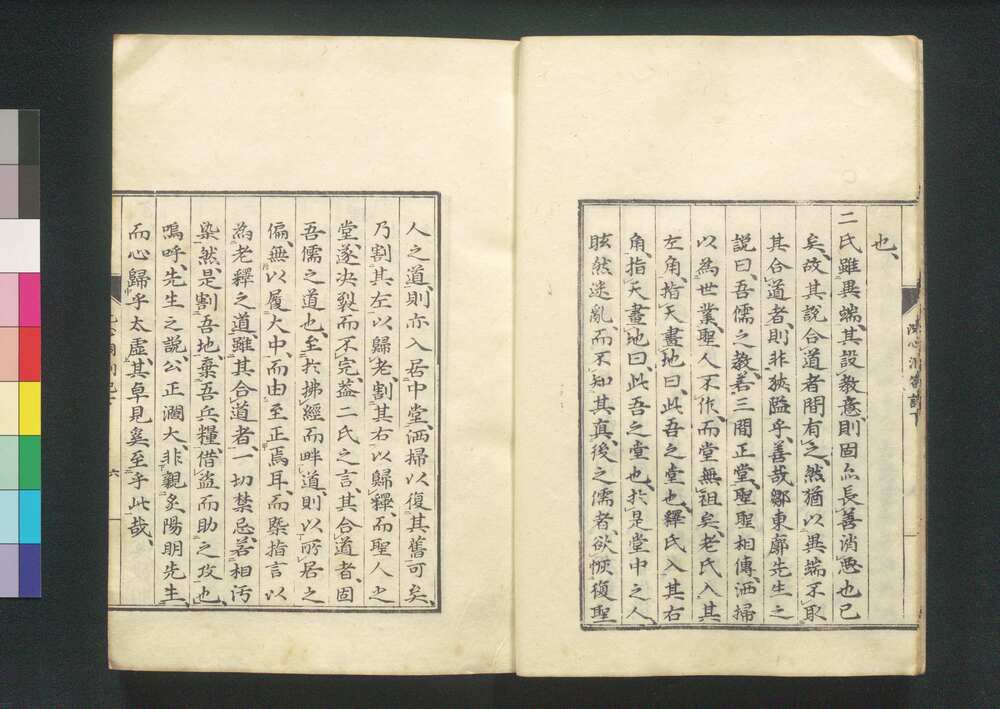 也、
二氏雖異端、其設教意則固亦長善消惡也已
矣、故其說合道者間有之、然猶以異端不取
其合道者、則非狹隘乎、善哉鄒東廓先生之
說曰、吾儒之教、善三間正堂、聖聖相傳、洒掃
以為世業、聖人不作、而堂無祖矣、老氏入其
左角、指天畫地曰、此吾之堂也、釋氏入其右
角、指天畫地曰、此吾之堂也、於是堂中之人、
眩然迷亂、而不知其真、後之儒者、欲恢復聖
人之道、則亦入居中堂、洒掃以復其舊可矣、
乃割其左以歸老、割其右以歸釋、而聖人之
堂、遂决裂而不完、蓋二氏之言、其合道者、固
吾儒之道也、至於拂經而畔道、則以所居之
偏、無以履大中、而由至正焉耳、而槩指言以
為老釋之道、雖其合道者、一切禁忌、若相汚
染然、是割吾地、棄吾兵糧、借盜而助之攻也、
嗚呼、先生之說、公正濶大、非親炙陽明先生、
而心歸乎太虛、其卓見奚至乎此哉、
六